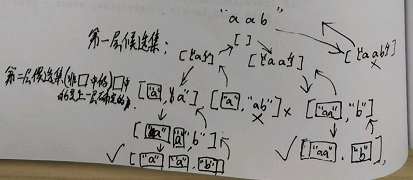 "a a b"
[ ]
第一层候选集:
["a"] ["aa"] ["aab"]
×
第二层候选集(非囗中的)囗中
的是上一层确定的
["a", "a"] ["a", "ab"] × ["aa", "b"]
×
["a", "a", "b"]
✓ ["a", "a", "b"] ✓ ["aa", "b"],